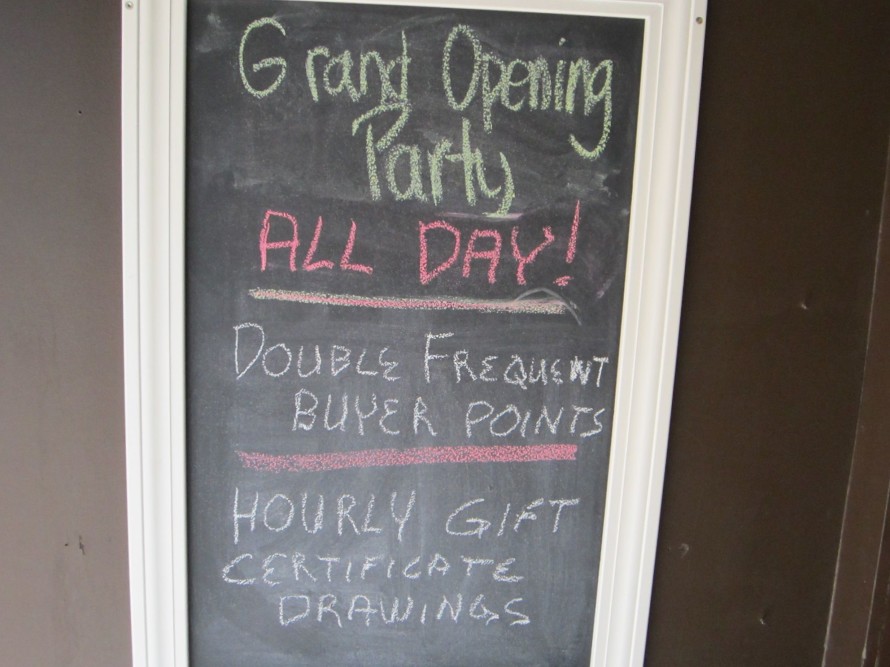 Grand Opening
Party
ALL DAY!
DOUBLE FREQUENT
BUYER POINTS
HOURLY GIFT
CERTIFICATE
DRAWINGS